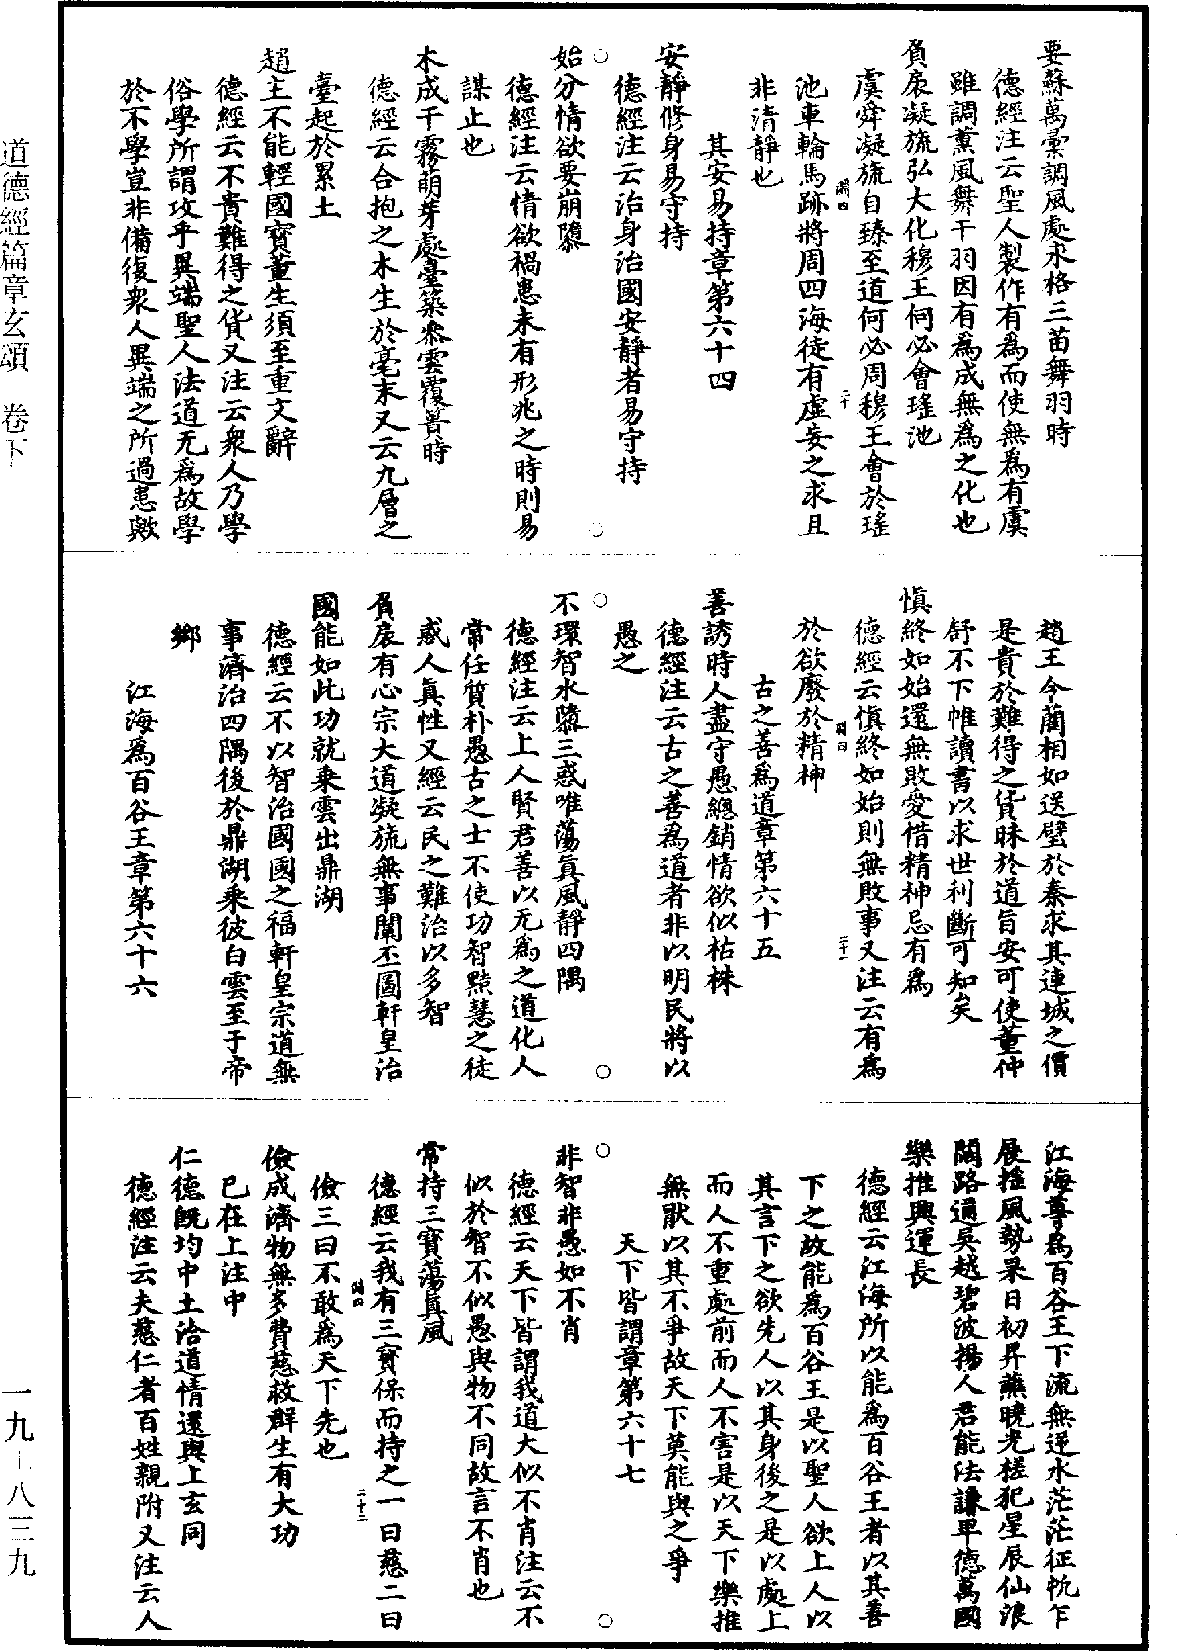 要蘇萬彙調風處求格三苗舞羽時
德經注云聖人製作有爲而使無爲有虞
雖調薰風舞干羽因有爲成無爲之化也
負扆凝旒弘大化穆王何必會瑤池
虞舜凝旒自臻至道何必周穆王會於瑤
池車輪馬跡將周四海徒有虛妄之求且
非清靜也
其安易持章第六十四
安靜修身易守持
德經注云治身治國安靜者易守持
始分情欲要崩隳
德經注云情欲禍患未有形兆之時則易
謀止也
木成干霧萌芽處臺築參雲覆簣時
德經云合抱之木生於毫末又云九層之
臺起於累土
趙主不能輕國寶董生須至重文辭
德經云不貴難得之貨又注云衆人乃學
俗學所謂攻乎異端聖人法道无爲故學
於不學豈非備復衆人異端之所過患歟
趙王令藺相如送壁於秦求其連城之價
是貴於難得之貨昧於道旨安可使董仲
舒不下帷讀書以求世利斷可知矣
慎終如始還無敗愛惜精神忌有爲
德經云慎終如始則無敗事又注云有爲
於欲廢於精神
古之善爲道章第六十五
善誘時人盡守愚總銷情欲似枯株
德經注云古之善爲道者非以明民將以
愚之
不環智水隳三惑唯蕩真風靜四隅
德經注云上人賢君善以无爲之道化人
常任質朴愚古之士不使功智黠慧之徒
惑人真性又經云民之難治以多智
負扆有心宗大道凝旒無事闡丕圖軒皇治
國能如此功就乘雲出鼎湖
德經云不以智治國國之福軒皇宗道無
事濟治四隅後於鼎湖乘彼白雲至于帝
鄉
江海爲百谷王章第六十六
江海尊爲百谷王下流無逆水茫茫征帆乍
展搖風勢杲日初昇蘸曉光槎犯星辰仙浪
闊路通吳越碧波揚人君能法謙卑德萬國
樂推興運長
德經云江海所以能爲百谷王者以其善
下之故能爲百谷王是以聖人欲上人以
其言下之欲先人以其身後之是以處上
而人不重處前而人不害是以天下樂推
無猒以其不爭故天下莫能與之爭
天下皆謂章第六十七
非智非愚如不肖
德經云天下皆謂我道大似不肖注云不
似於智不似愚與物不同故言不肖也
常持三寶蕩真風
德經云我有三寶保而持之一曰慈二曰
儉三曰不敢爲天下先也
儉成濟物無多費慈救群生有大功
已在上注中
仁德既均中土洽道情還與上玄同
德經注云夫慈仁者百姓親附又注云人
道德經篇章玄頌　卷下
一九－八三九